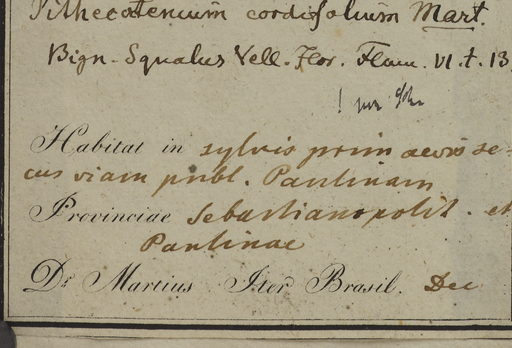 Pithecoctenium cordifolium Mart.
Bign. Squalus Vell. Flor. Flum. VI. t. 13
Habitat in sylvis primaevis se-
cus viam publ. Paulinam
Provinciae Sebastianopolit. et
Paulinae
Dr. Martius Iter Brasil. Dec